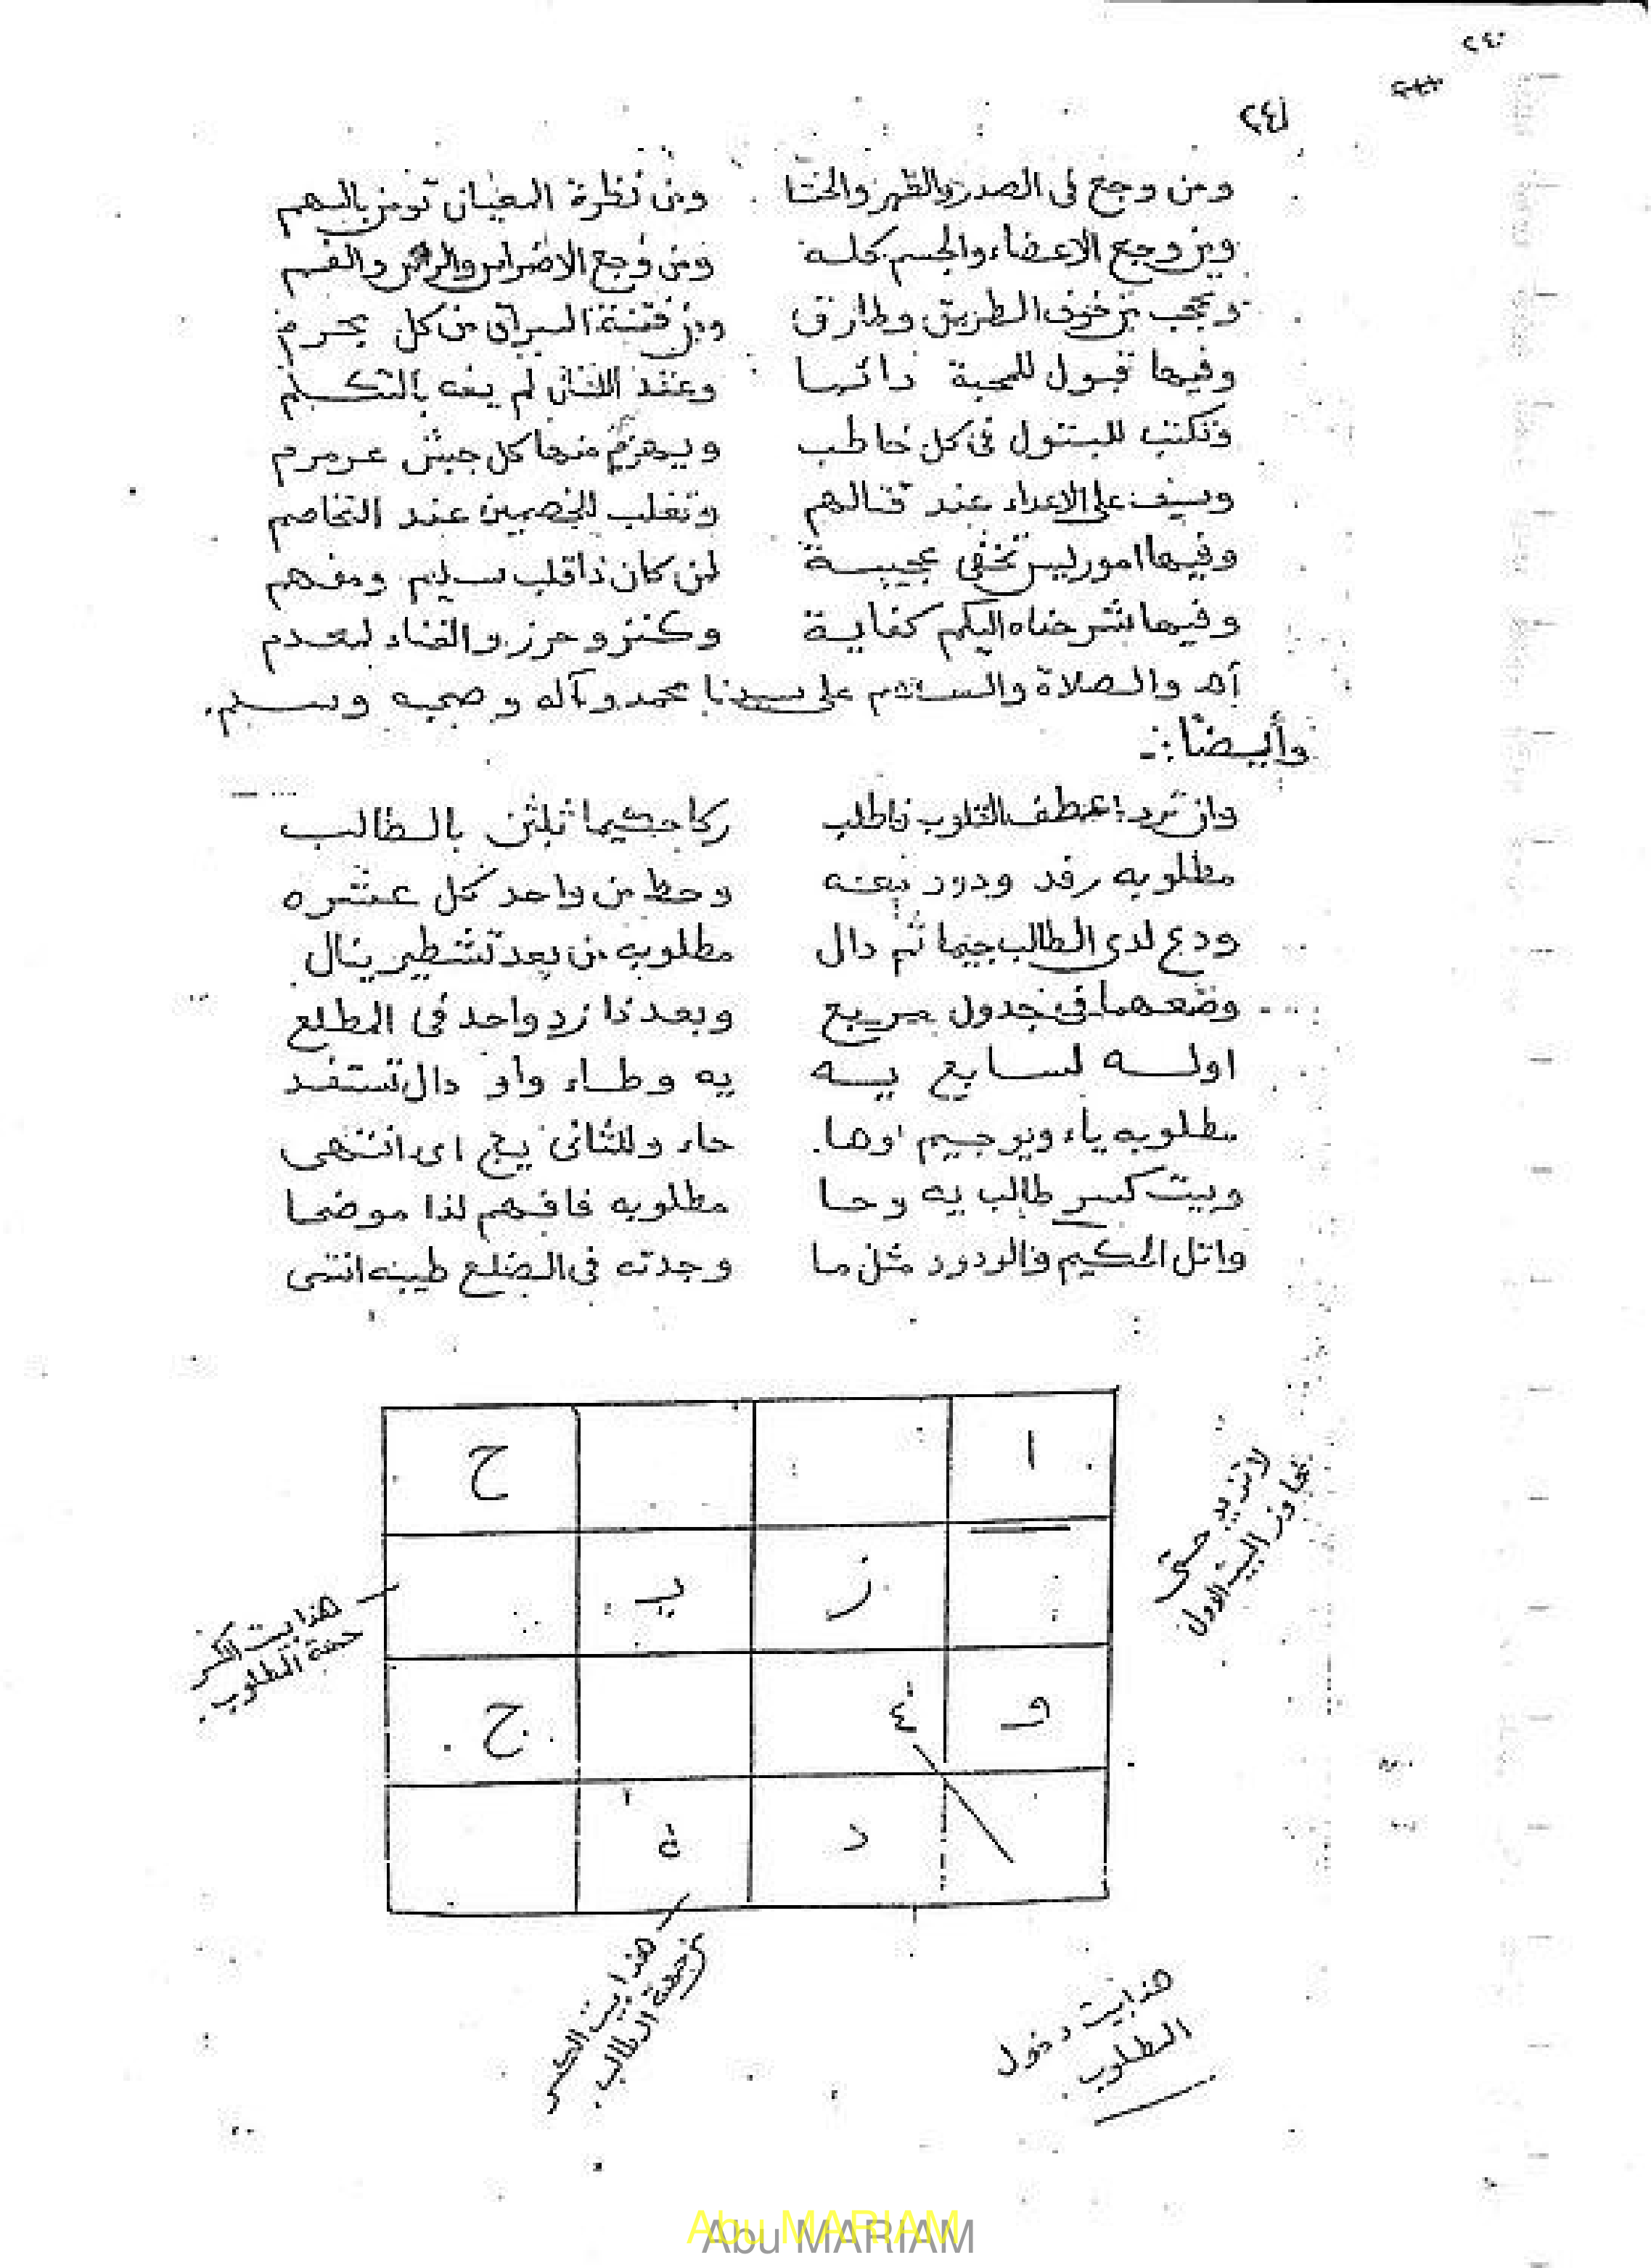 ٢٤٠
٢٤١
ومن وجع فى الصدر والظهر والحشا ومن نظرة المعيان تومن بالسهم
ومن وجع الاعضاء والجسم كله ومن وجع الاضراس والراس والفم
وتحجب من خوف الطريق وطارق ومن فتنة السراق من كل مجرم
وفيها قبول للمحبة دائما وعند اللسان لم يفه بالتكلم
وتكتب للبتول فى كل خاطب ويهزم منها كل جيش عرمرم
وسيف على الاعداء عند قتالهم وتغلب للخصمين عند التخاصم
وفيها امور ليس تخفى عجيبة لمن كان ذا قلب سليم ومفهم
وفيها شرحناه اليكم كفاية وكنز وحرز والغناء لمعدم
اهـ والصلاة والسلام على سيدنا محمد وآله وصحبه وسلم.
وأيضًا:-
وان ترد اعطف القلوب فاطلب ركا حكيما ثلثن بالطالب
مطلوبه رفد ودود وحط من واحد كل عشره
ودع لدى الطالب جيما ثم دال مطلوبه من بعد تشطير ينال
وضعهما فى جدول مربع وبعد ذا زد واحد فى المطلع
اوله لسابع يه يه وطاء واو دال تستفد
مطلوبه ياء ويو جيم اوها حاء وللثانى يج اى انتهى
وبيت كسر طالب يه وحا مطلوبه فافهم لذا موضحا
واتل الحكيم والودود مثل ما وجدته فى الضلع انتمى
ا ح
لا تزيد حتى
تجاوز البيت الاول
ز يـ
هذا بيت الكسر
جهة المطلوب
و ٤ ج
د ة
هذا بيت الكسر
من جهة الطالب
هذا بيت دخول
المطلوب
Abu MARIAM